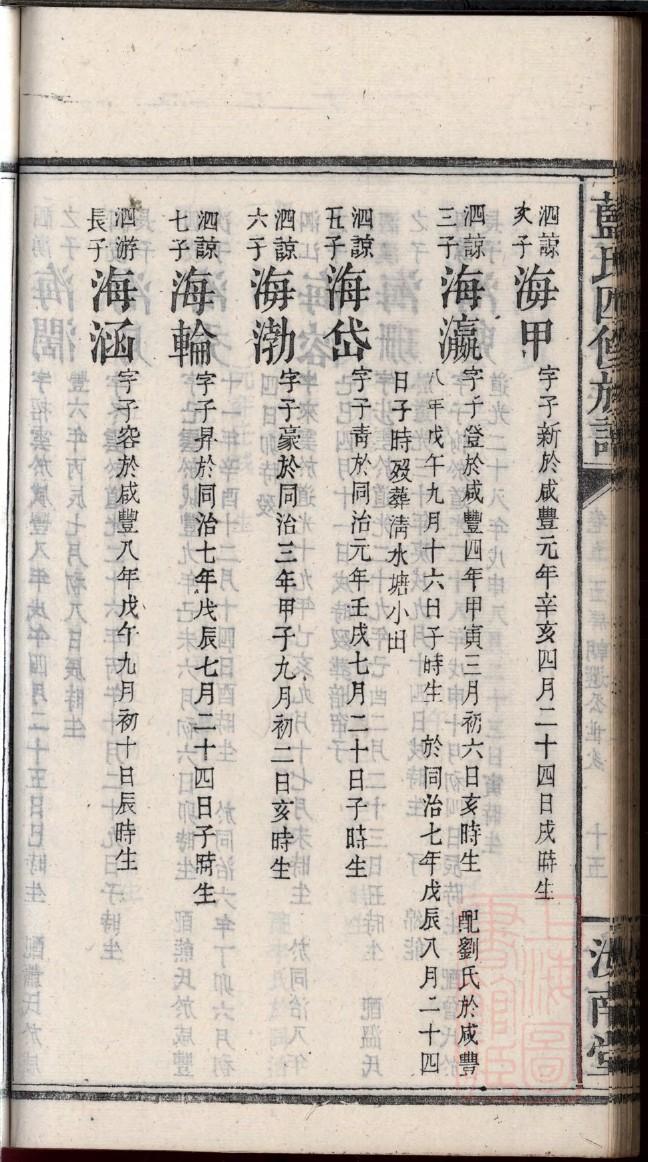 藍氏四修族譜
汝南堂
泗諒次子 海甲 字子新於咸豐元年辛亥四月二十四日戌時生
泗諒三子 海瀛 字子登於咸豐四年甲寅三月初六日亥時生 配劉氏於咸豐
八年戊午九月十六日子時生 於同治七年戊辰八月二十四
日子時歿葬淸水塘小田
泗諒五子 海岱 字子靑於同治元年壬戌七月二十日子時生
泗諒六子 海渤 字子豪於同治三年甲子九月初二日亥時生
泗諒七子 海輪 字子昇於同治七年戊辰七月二十四日子時生
泗游長子 海涵 字子容於咸豐八年戊午九月初十日辰時生